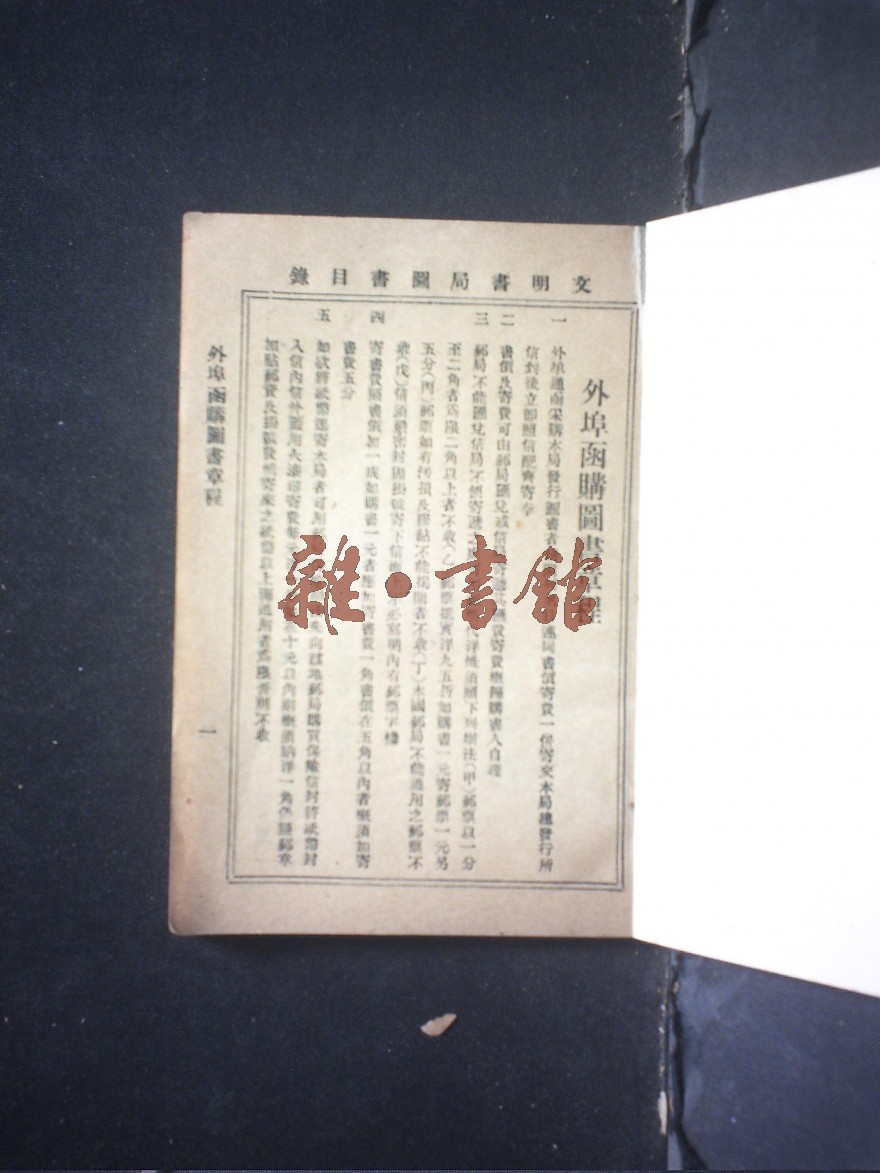 文明書局圖書目錄
外埠函購圖書章程
一 外埠通函采購本局發行圖書者 遠同書價寄費一倂寄交本局總發行所
信到後立卽照信配齊寄奉
二 書價及寄費可由郵局匯兌或信 匯費寄費槪歸購書人自理
三 郵局不能匯兌信局不便寄遞之 洋惟須照下列辦法(甲)郵票以一分
至二角者爲限二角以上者不收 郵票抵實洋九五折如購書一元寄郵票一元另
五分(丙)郵票如有汚損及膠黏不能揭開者不收(丁)本國郵局不能通用之郵票不
收(戊)信須嚴密封固掛號寄下信面上不必寫明內有郵票字樣
四 寄書費照書價加一成如購書一元者應加寄書費一角書價在五角以內者槪須加寄
書費五分
五 如欲將紙幣逕寄本局者可用 先向該地郵局購買保險信封將紙幣封
入信內信外蓋用火漆印寄費每 十元以內者槪須納洋一角保險郵章
加貼郵資及掛號費惟寄來之紙幣以上海通用者爲限否則不收
外埠函購圖書章程
一
雜·書館